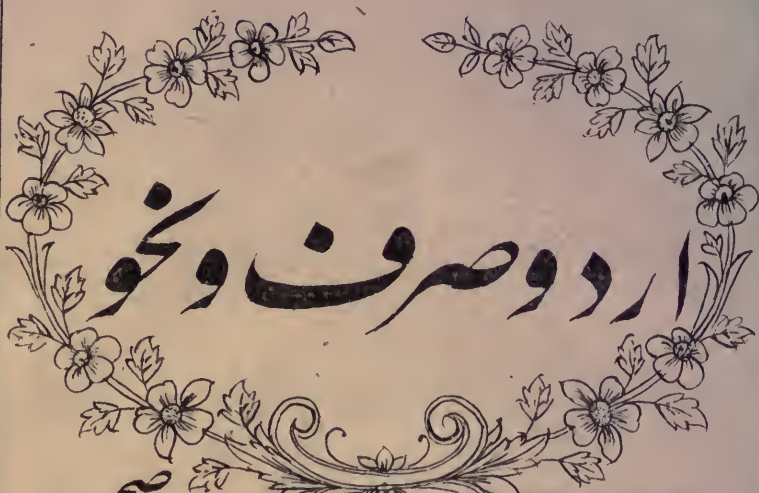 اردو صرف و نحو